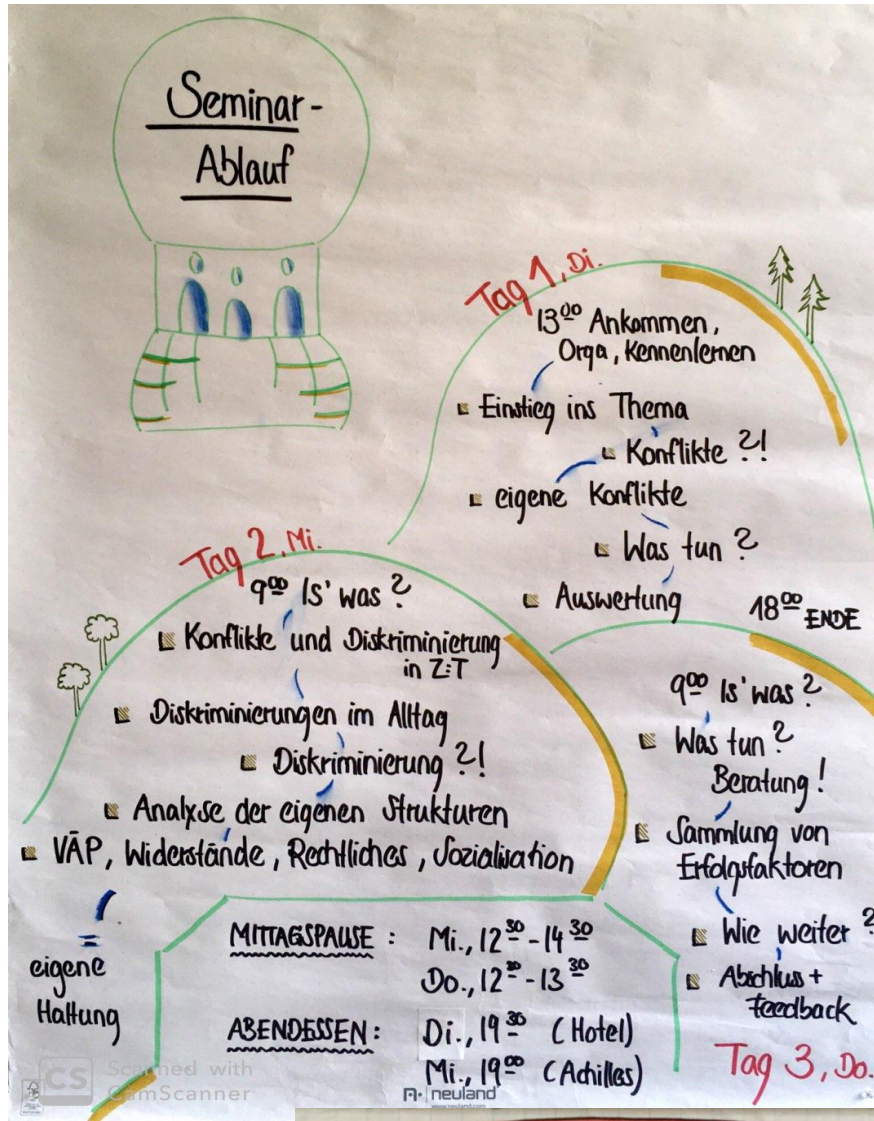 Seminar-
Ablauf
Tag 1, Di.
13⁰⁰ Ankommen,
Orga, Kennenlernen
Einstieg ins Thema
Konflikte ?!
eigene Konflikte
Was tun ?
Auswertung
18⁰⁰ ENDE
Tag 2, Mi.
9⁰⁰ Is' was ?
Konflikte und Diskriminierung
in Z:T
Diskriminierungen im Alltag
Diskriminierung ?!
Analyse der eigenen Strukturen
VÄP, Widerstände, Rechtliches, Sozialisation
eigene
Haltung
9⁰⁰ Is' was ?
Was tun ?
Beratung !
Sammlung von
Erfolgsfaktoren
Wie weiter ?
Abschluss +
Feedback
Tag 3, Do.
MITTAGSPAUSE : Mi., 12³⁰ - 14³⁰
Do., 12³⁰ - 13³⁰
ABENDESSEN : Di., 19³⁰ (Hotel)
Mi., 19⁰⁰ (Achilles)
CS Scanned with
CamScanner
neuland
www.neuland.com